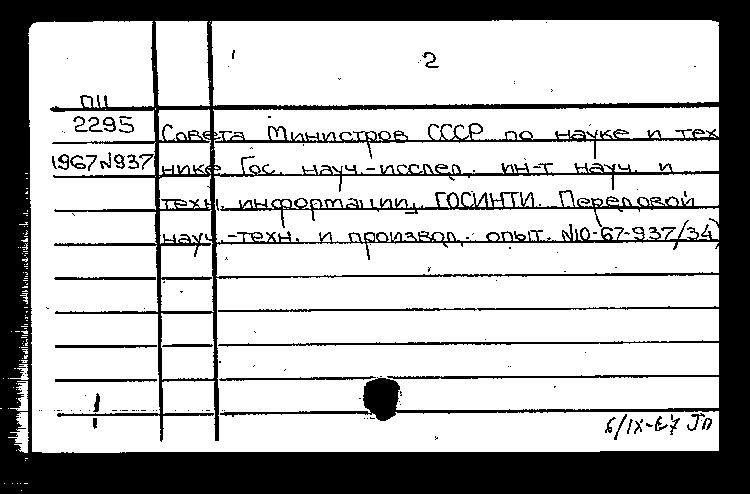 2
ПII
2295 Совета Министров СССР по науке и тех
1967 N937 нике. Гос. науч.-исслед. ин-т науч. и
техн. информации, ГОСИНТИ. Передовой
науч.-техн. и производ. опыт. N10-67-937/34)
6/IX-67